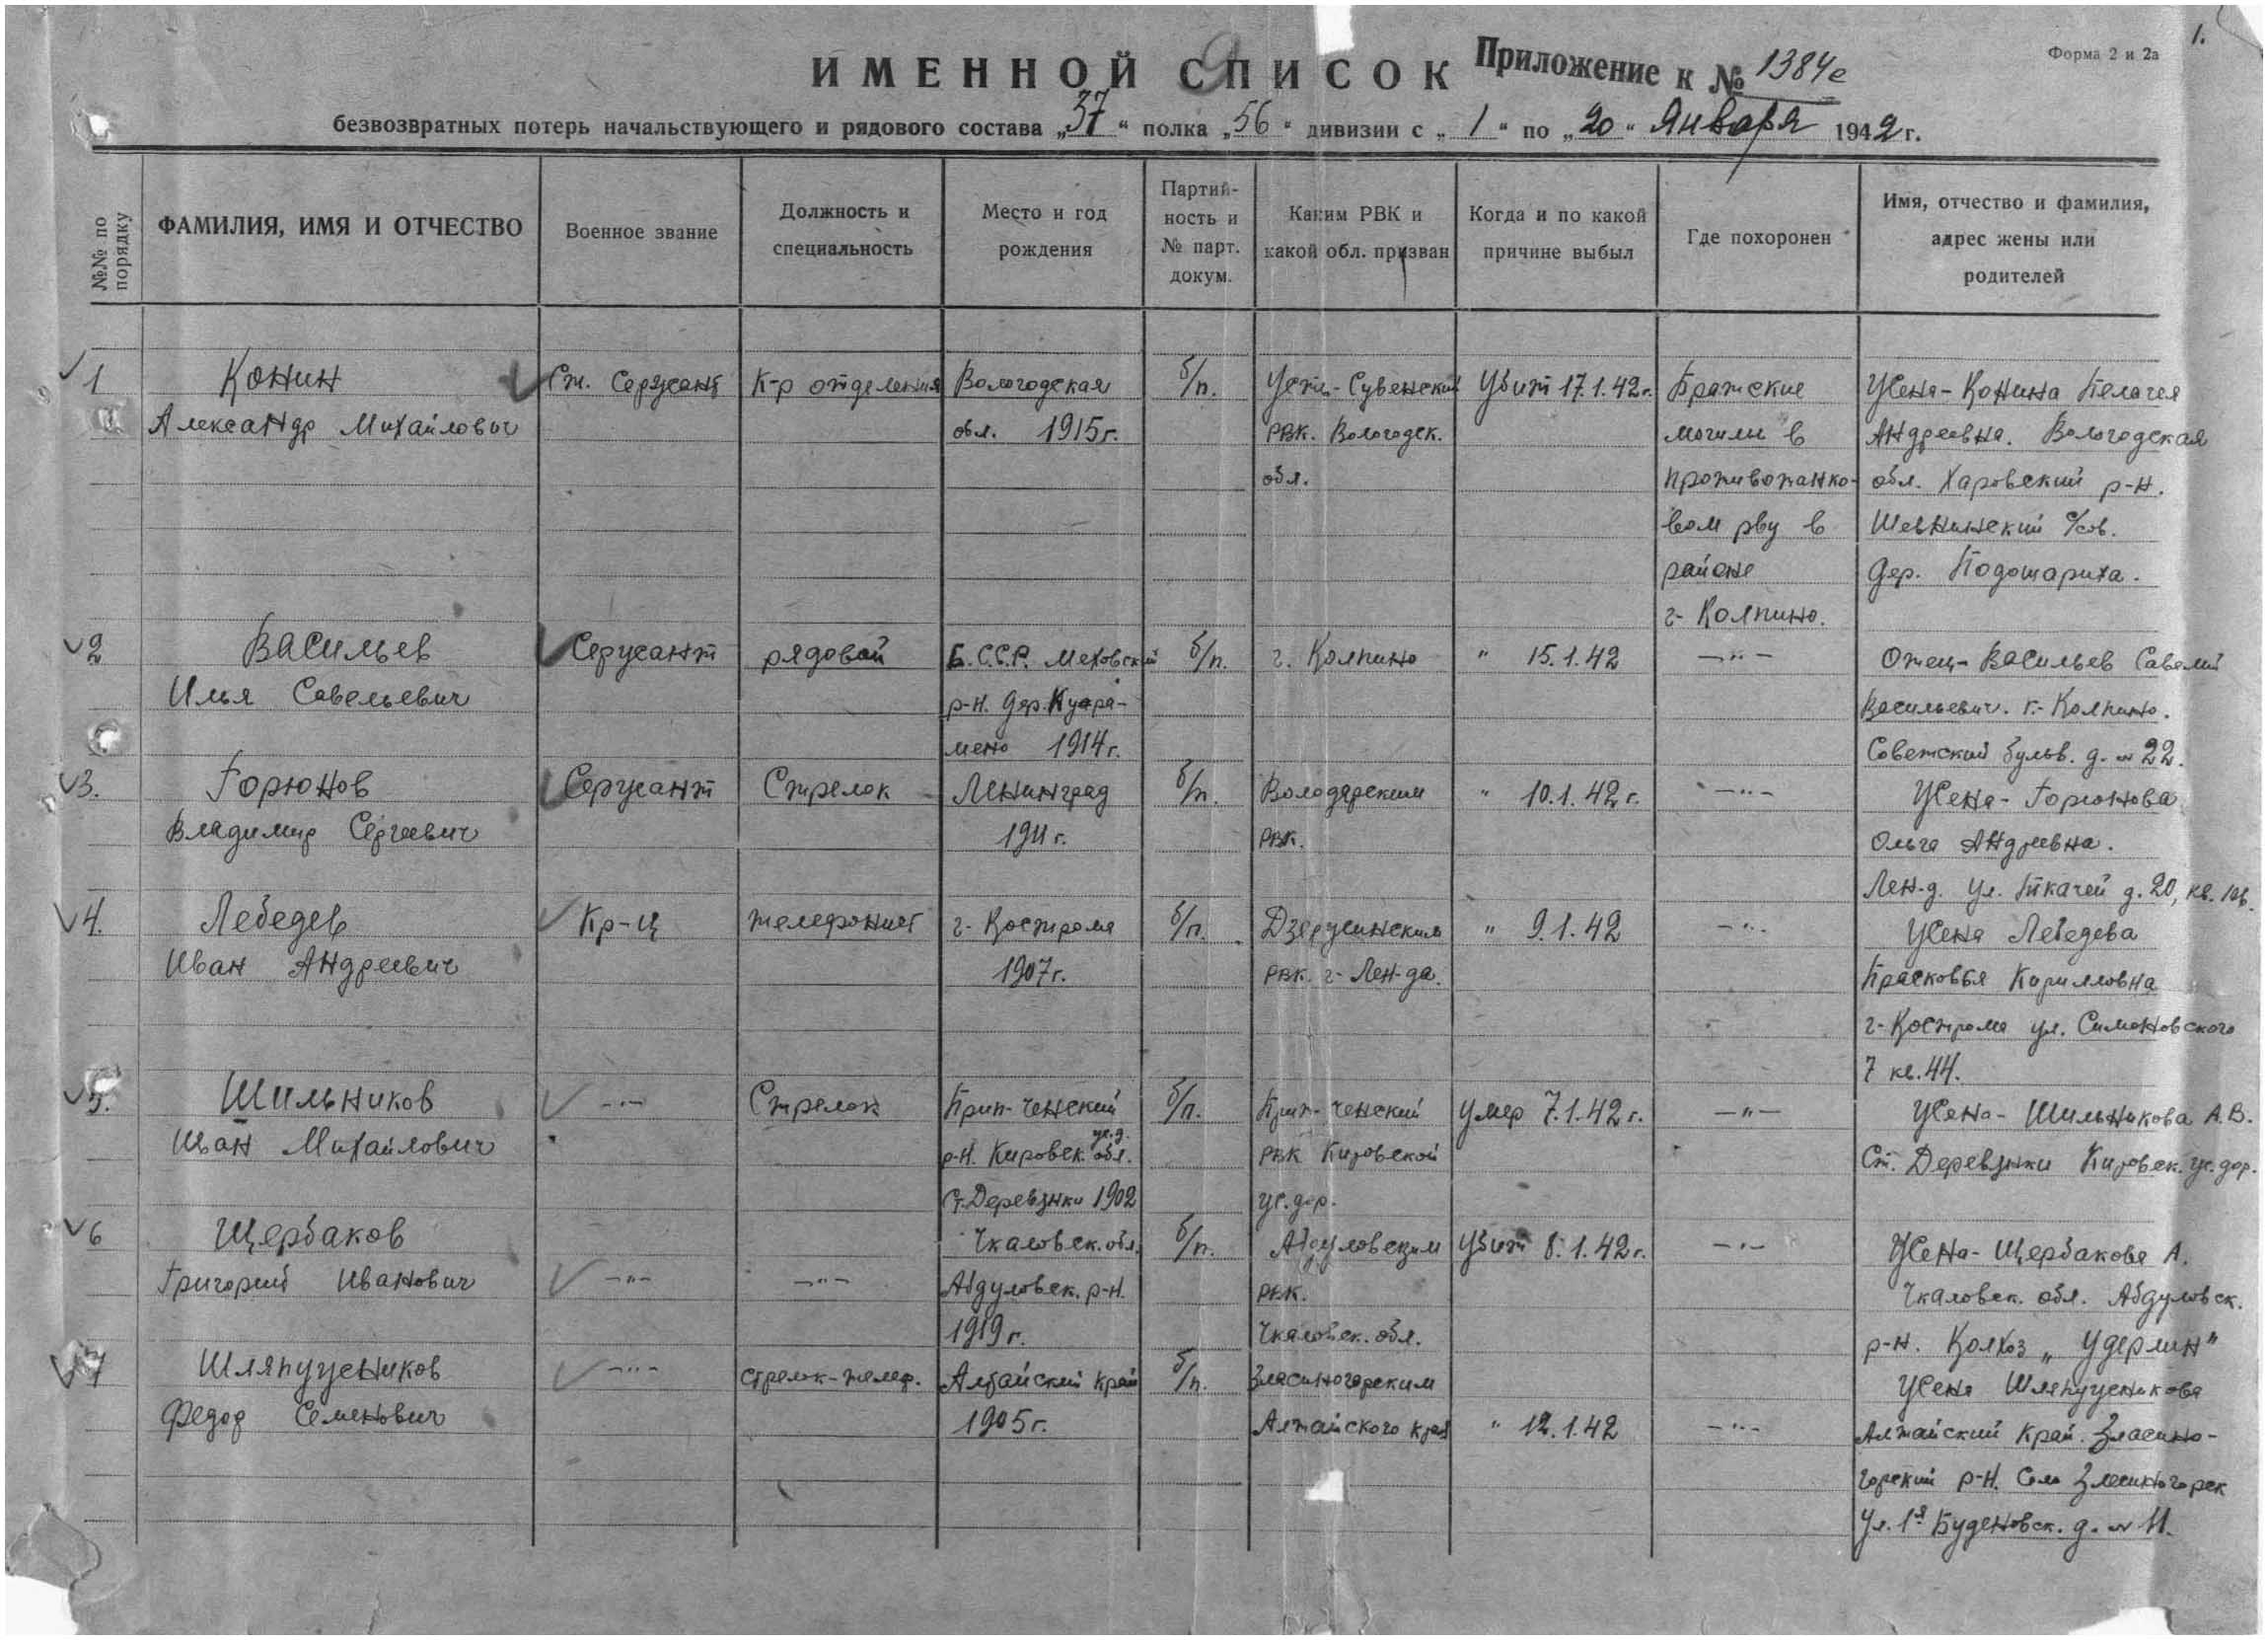 1.
Форма 2 и 2а
ИМЕННОЙ СПИСОК Приложение к № 1384с
безвозвратных потерь начальствующего и рядового состава „37“ полка „56“ дивизии с „1“ по „20“ Января 1942 г.
№№ по порядку
ФАМИЛИЯ, ИМЯ И ОТЧЕСТВО
Военное звание
Должность и
специальность
Место и год
рождения
Партий-
ность и
№ парт.
докум.
Каким РВК и
какой обл. призван
Когда и по какой
причине выбыл
Где похоронен
Имя, отчество и фамилия,
адрес жены или
родителей
1
Конин
Александр Михайлович
Ст. Сержант
К-р отделения
Вологодская
обл. 1915 г.
б/п.
РВК. Вологодск.
обл.
Убит 17.1.42 г.
Братские
могилы в
противотанко-
вом рву в
районе
г. Колпино.
Жена - Конина Пелагея
Андреевна. Вологодская
обл. Харовский р-н.
Шевницкий с/сов.
дер. Подошариха.
2
Васильев
Илья Савельевич
Сержант
рядовой
Б.С.С.Р. Меховский
р-н. дер.
1914 г.
б/п.
г. Колпино
" 15.1.42
—"—
Отец - Васильев Савелий
Васильевич. г. Колпино.
Советский бульв. д. № 22.
3.
Горюнов
Владимир Сергеевич
Сержант
Стрелок
Ленинград
1911 г.
б/п.
Володарским
РВК.
" 10.1.42 г.
—"—
Жена - Горюнова
Ольга Андреевна.
Лен-д. ул. Ткачей д. 20, кв.
4.
Лебедев
Иван Андреевич
Кр-ц
телефонист
г. Кострома
1907 г.
б/п.
Дзержинским
РВК. г. Лен-да.
" 9.1.42
—"—
Жена Лебедева
Прасковья Кирилловна
г. Кострома ул. Симановского
7 кв. 44.
5.
Шильников
Иван Михайлович
—"—
Стрелок
р-н. Кировск. обл.
ж.д.
1902
б/п.
РВК Кировской
ж. дор.
умер 7.1.42 г.
—"—
Жена - Шильникова А.В.
Ст. Кировск. ж. дор.
6
Щербаков
Григорий Иванович
—"—
—"—
Чкаловск. обл.
Абдуловск. р-н.
1919 г.
б/п.
Абдуловским
РВК.
Чкаловск. обл.
Убит 8.1.42 г.
—"—
Жена - Щербакова А.
Чкаловск. обл. Абдуловск.
р-н. Колхоз „Удермин"
7
Шляпужников
Федор Семенович
—"—
стрелок-телеф.
Алтайский край
1905 г.
б/п.
Змеиногорским
Алтайского края
" 12.1.42
—"—
Жена Шляпужникова
Алтайский край. Змеино-
горский р-н. Село Змеиногорск
Ул. 1я Буденовск. д. № 11.